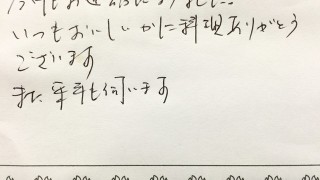 いつもおいしいかに料理ありがとう
ございます
また来年も伺います